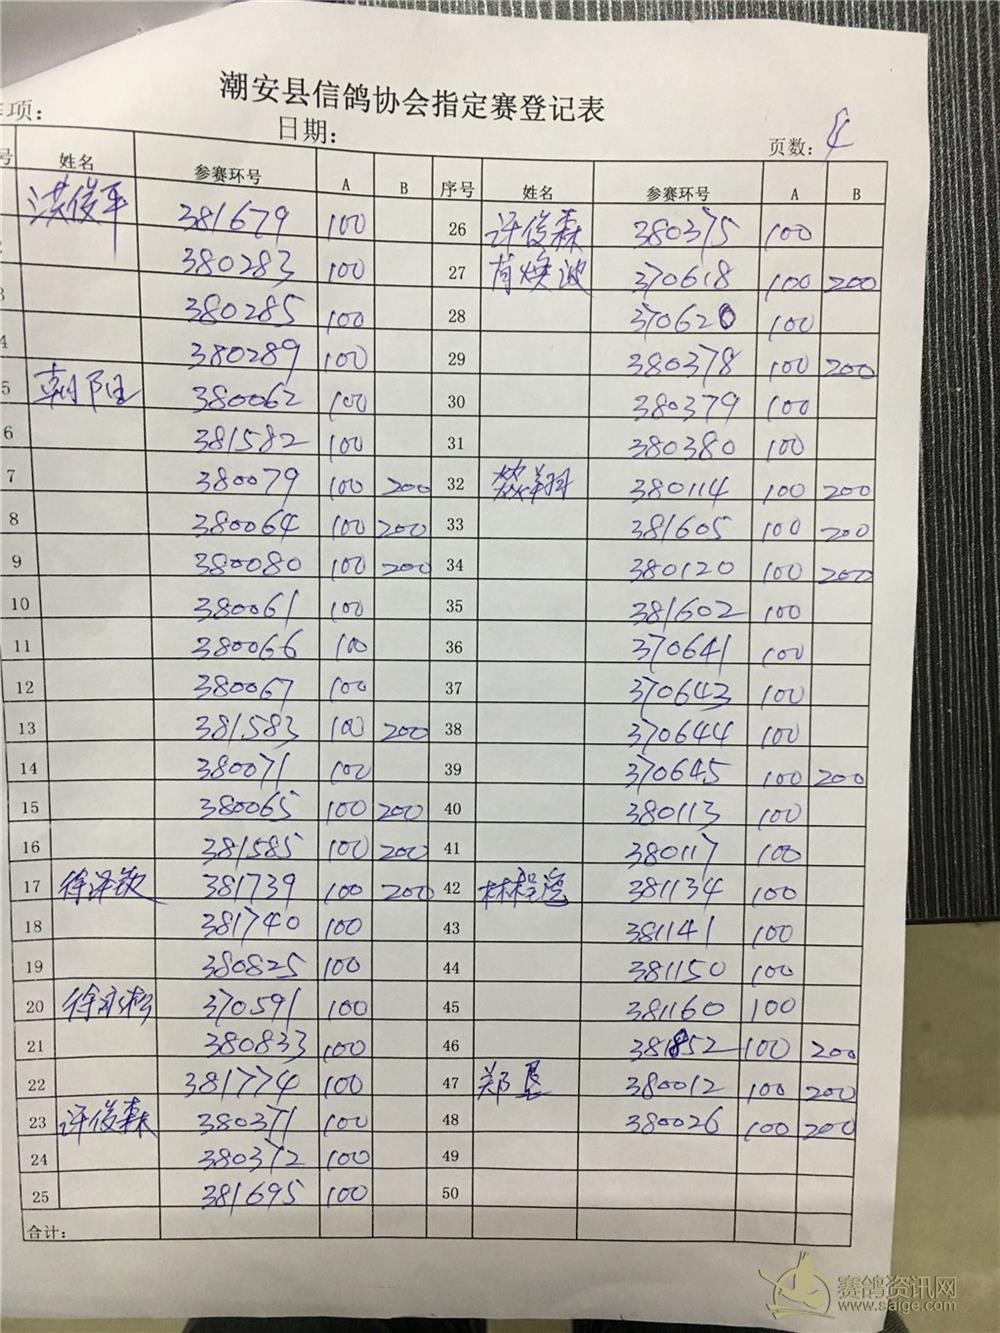 潮安县信鸽协会指定赛登记表
项: 日期: 页数: 4
号 姓名 参赛环号 A B 序号 姓名 参赛环号 A B
洪俊平 381679 100 26 许俊森 380375 100
380283 100 27 肖焕波 370618 100 200
3 380285 100 28 370620 100
4 380289 100 29 380378 100 200
5 朝阳 380062 100 30 380379 100
6 381582 100 31 380380 100
7 380079 100 200 32 380114 100 200
8 380064 100 200 33 381605 100 200
9 380080 100 200 34 380120 100 200
10 380061 100 35 381602 100
11 380066 100 36 370641 100
12 380067 100 37 370643 100
13 381583 100 200 38 370644 100
14 380071 100 39 370645 100 200
15 380065 100 200 40 380113 100
16 381585 100 200 41 380117 100
17 徐泽钦 381739 100 200 42 381134 100
18 381740 100 43 381141 100
19 380825 100 44 381150 100
20 徐永松 370591 100 45 381160 100
21 380833 100 46 381852 100 200
22 381774 100 47 郑 380012 100 200
23 许俊森 380371 100 48 380026 100 200
24 380372 100 49
25 381695 100 50
合计:
赛鸽资讯网
www.saige.com